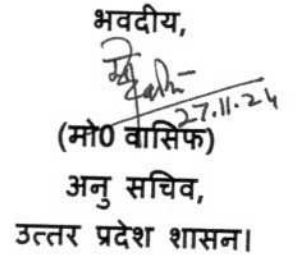 भवदीय,
27.11.24
(मो0 वासिफ)
अनु सचिव,
उत्तर प्रदेश शासन।